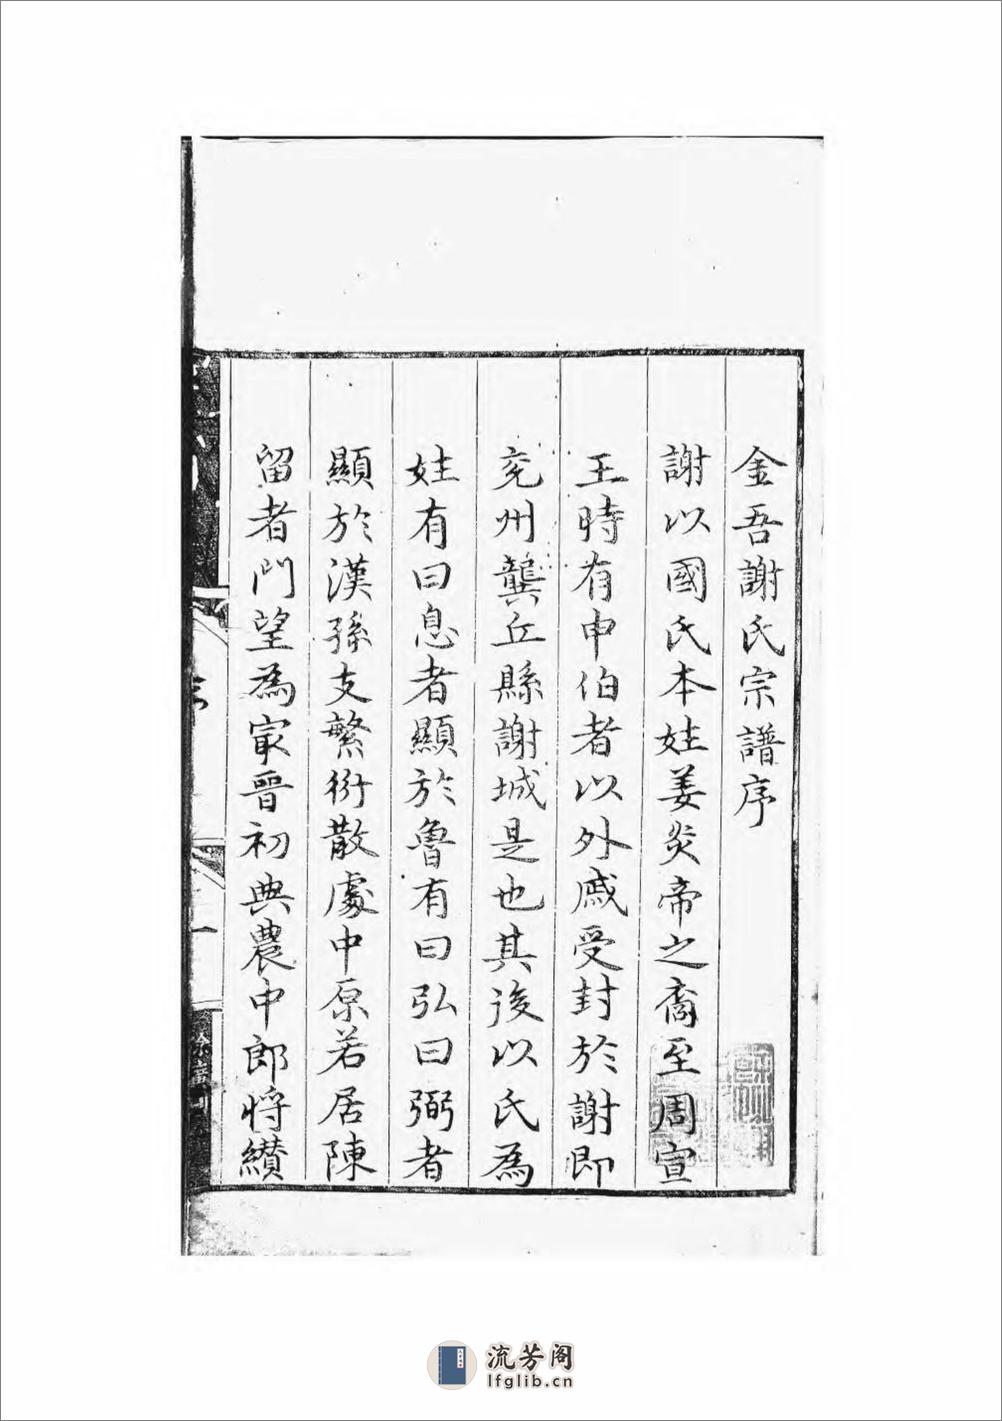 金吾謝氏宗譜序
謝以國氏本姓姜炎帝之裔至周宣
王時有申伯者以外戚受封於謝即
兖州龔丘縣謝城是也其後以氏為
姓有曰息者顯於魯有曰弘曰弼者
顯於漢孫支繁衍散處中原若居陳
留者門望為冣晉初典農中郎將纘
流芳阁
lfglib.cn